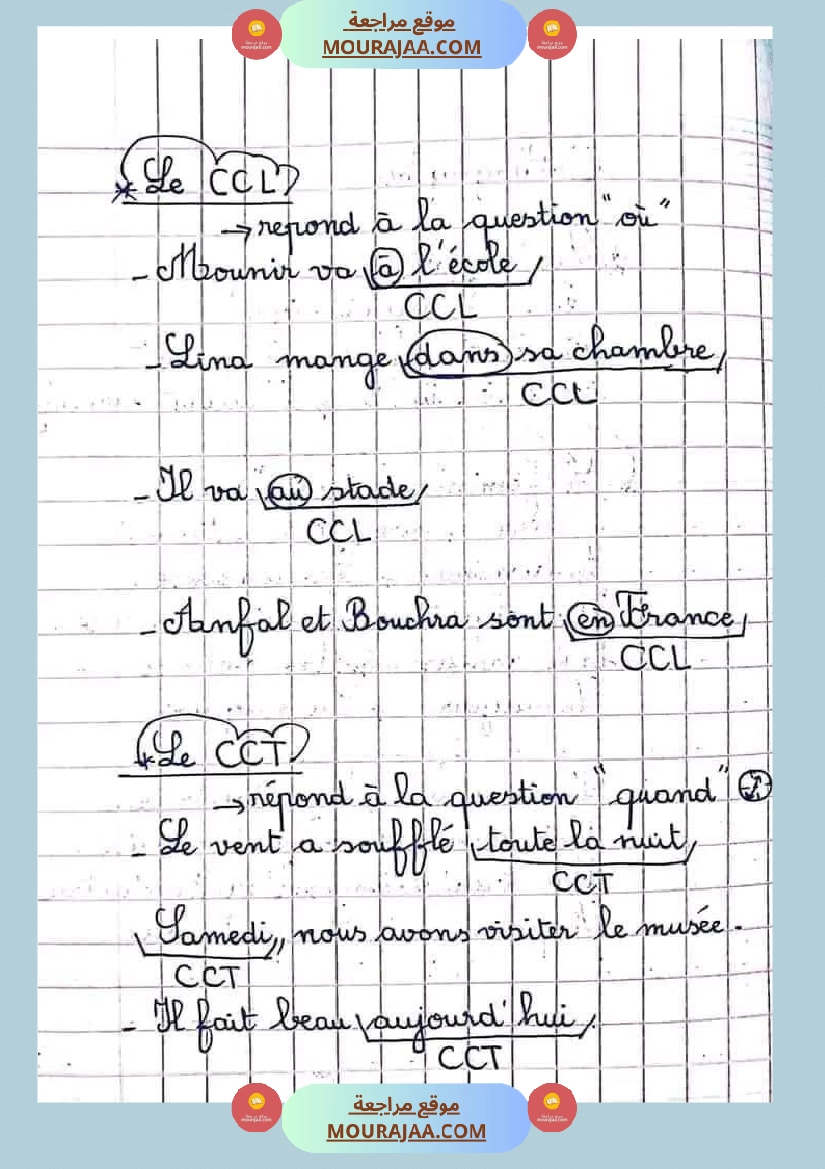 موقع مراجعة
MOURAJAA.COM
* Le CCL
→ repond à la question "où"
- Mounir va à l'école
CCL
- Lina mange dans sa chambre
CCL
- Il va au stade
CCL
- Anfal et Bouchra sont en France
CCL
* Le CCT
→ répond à la question "quand"
- Le vent a soufflé toute la nuit
CCT
Samedi, nous avons visiter le musée.
CCT
- Il fait beau aujourd'hui.
CCT
موقع مراجعة
MOURAJAA.COM